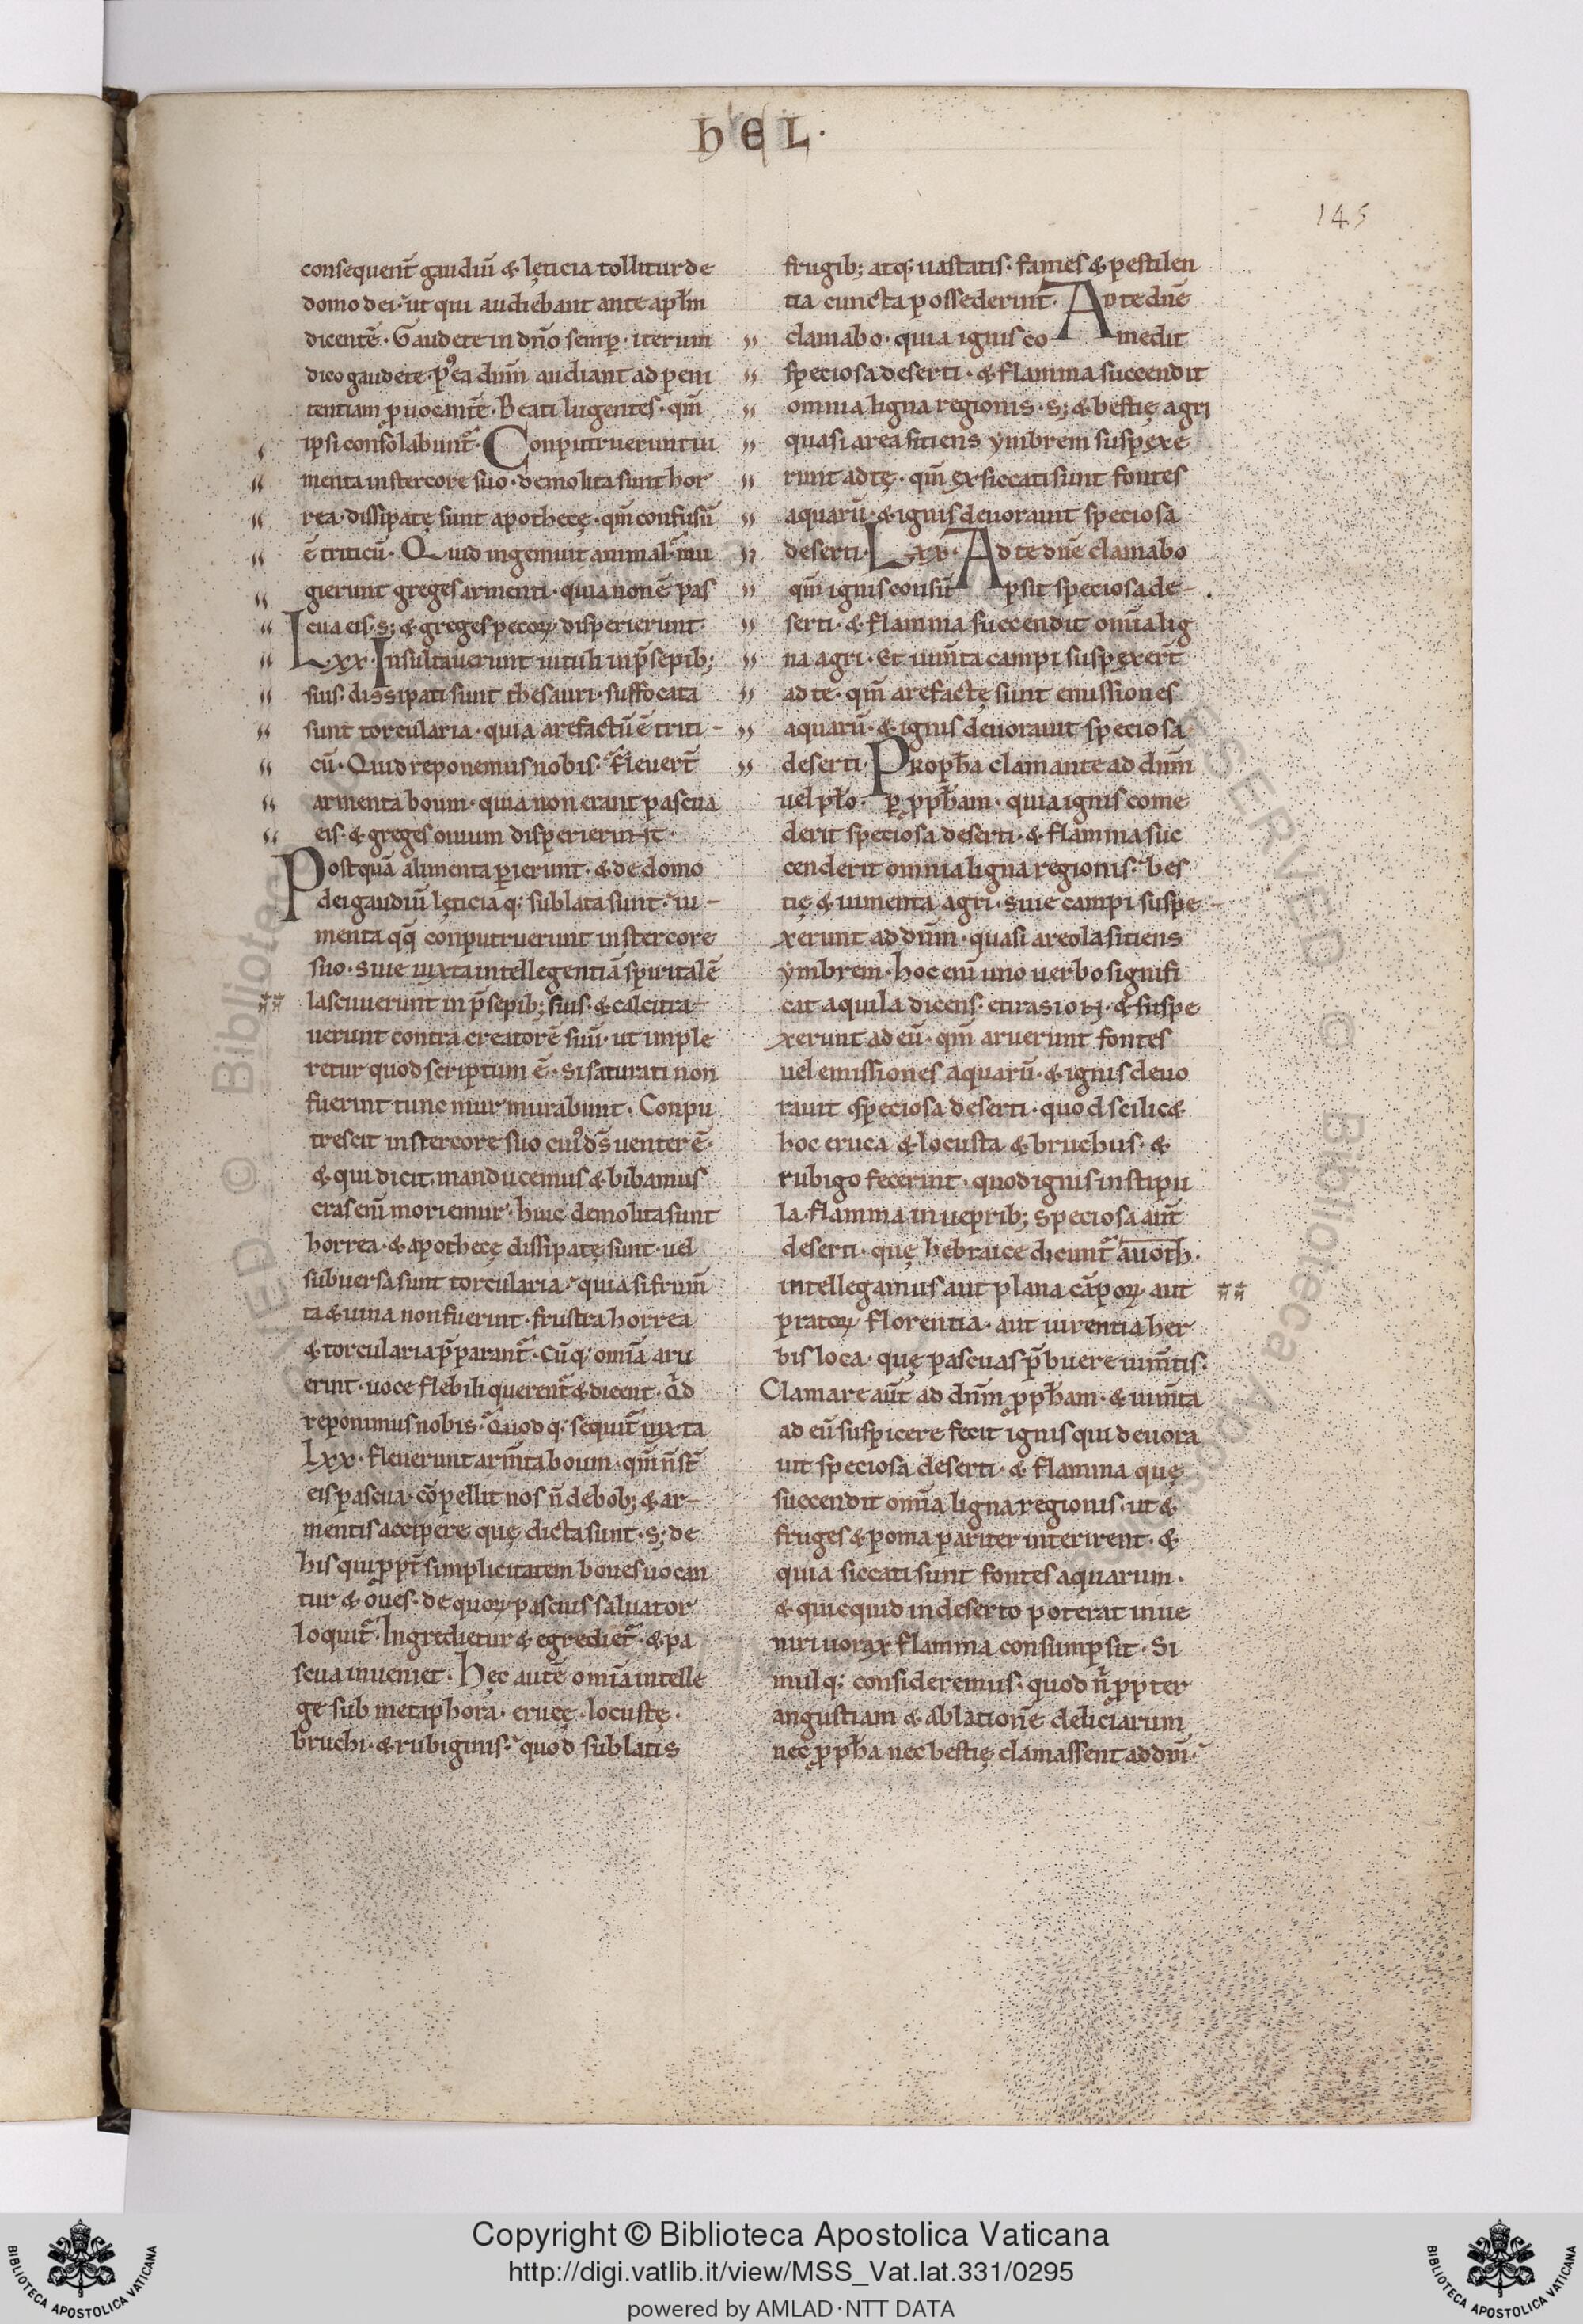 hEL·
145
consequent̄ gaudiū & lęticia tollitur de
domo dei· ut qui audiebant ante apl̄m
dicentē· Gaudete in dn̄o semp̲· iterum
dico gaudete· p̱ꝰea dum̄ audiant ad peni
tentiam ꝓuocantē· Beati lugentes· qm̄
ipsi consolabunt̄· Conputruerunt iu
menta in stercore suo· demolita sunt hor
rea· dissipatę sunt apothecę· qm̄ confusū
ē triticū· Quid ingemuit animal· mu
gierunt greges armenti· quia non ē pas
cua eis· s; & greges pecoꝝ disperierunt·
Lxx· Insultauerunt uituli in p̄sepib;
suis· dissipati sunt thesauri· suffocata
sunt torcularia· quia arefactū ē triti-
cū· Quid reponemus nobis· fleuert̄
armenta boum· quia non erant pascua
eis· & greges ouium disperierunt·
Postquā alimenta ꝑierunt· & de domo
dei gaudiū lęticia q; sublata sunt· iu-
menta qq̄ conputruerunt in stercore
suo· siue iuxta intellegentiā spiritalē
lasciuierunt in p̄sepib; suis· & calcitra-
uerunt contra creatorē suū· ut imple
retur quod scriptum ē· Si saturati non
fuerint tunc murmurabunt· Conpu
trescit in stercore suo cuiꝰ ds̄ uenter ē·
& qui dicit· manducemus & bibamus
cras eni̅ moriemur· huic demolita sunt
horrea· & apothecę dissipatę sunt· uel
subuersa sunt torcularia· quia si frum̄
ta & uina non fuerint· frustra horrea
& torcularia p̄parant̄· Cū q; om̄ia aru
erint· uoce flebili querent̄ & dicent· Qi̇d
reponimus nobis· Quod q; sequit̄ iuxta
Lxx· fleuerunt arm̄ta boum· qm̄ n̄ st̄
eis pascua· cōpellit nos n̄ de bob; & ar-
mentis accipere quę dicta sunt· s; de
his qui ꝓpt̄ simplicitatem boues uocan
tur & oues· de quoꝝ pascuis saluator
loquit̄· Ingredietur & egrediet̄· & pa
scua inueniet· hęc autē om̄ia intelle
ge sub metaphora· erucę· locustę·
bruchi· & rubiginis· quod sublatis
frugib; atq; uastatis· fames & pestilen
tia cuncta possederint· Ad te dn̄e
clamabo· quia ignis comedit
speciosa deserti· & flamma succendit
omnia ligna regionis· s; & bestię agri
quasi area sitiens ymbrem suspęxe
runt ad tę· qm̄ exsiccati sunt fontes
aquarū· & ignis deuorauit speciosa
deserti· Lxx· Ad te dn̄e clamabo
qm̄ ignis consūpsit speciosa de-
serti· & flamma succendit om̄ia lig
na agri· Et ium̄ta campi suspexert̄
ad te· qm̄ arefactę sunt emissiones
aquarū· & ignis deuorauit speciosa
deserti· Proph̄a clamante ad dnm̄
uel pl̄o· ꝑ ꝓph̄am· quia ignis come
derit speciosa deserti· & flamma suc
cenderit omnia ligna regionis· bes
tię & iumenta agri· siue campi suspe-
xerunt ad dnm̄· quasi areola sitiens
ymbrem· hoc eni̅ uno uerbo signifi
cat aquila dicens· & suspe
xerunt ad eū· qm̄ aruerunt fontes
uel emissiones aquarū· & ignis deuo
rauit speciosa deserti· quod scilic&
hoc eruca & locusta & bruchus· &
rubigo fecerint· quod ignis in stipu
la· flamma in ueprib; Speciosa aut̄
deserti· quę hebraice dicunt̄ auoth·
intellegamus aut plana cāpoꝝ· aut
pratoꝝ florentia· aut uirentia her
bis loca· quę pascuas p̄buere ium̄tis·
Clamare aut̄ ad dnm̄ ꝓph̄am· & ium̄ta
ad eū suspicere fecit ignis qui deuora
uit speciosa deserti· & flamma quę
succendit om̄ia ligna regionis· ut &
fruges & poma pariter interirent· &
quia siccati sunt fontes aquarum·
& quicquid in deserto poterat inue
niri uorax flamma consumpsit· Si
mul q; consideremus· quod n̄ ꝓpter
angustiam & ablationē deliciarum
nec ꝓph̄a nec bestię clamassent ad dm̄·
Copyright © Biblioteca Apostolica Vaticana
http://digi.vatlib.it/view/MSS_Vat.lat.331/0295
powered by AMLAD·NTT DATA
BIBLIOTECA APOSTOLICA VATICANA
BIBLIOTECA APOSTOLICA VATICANA